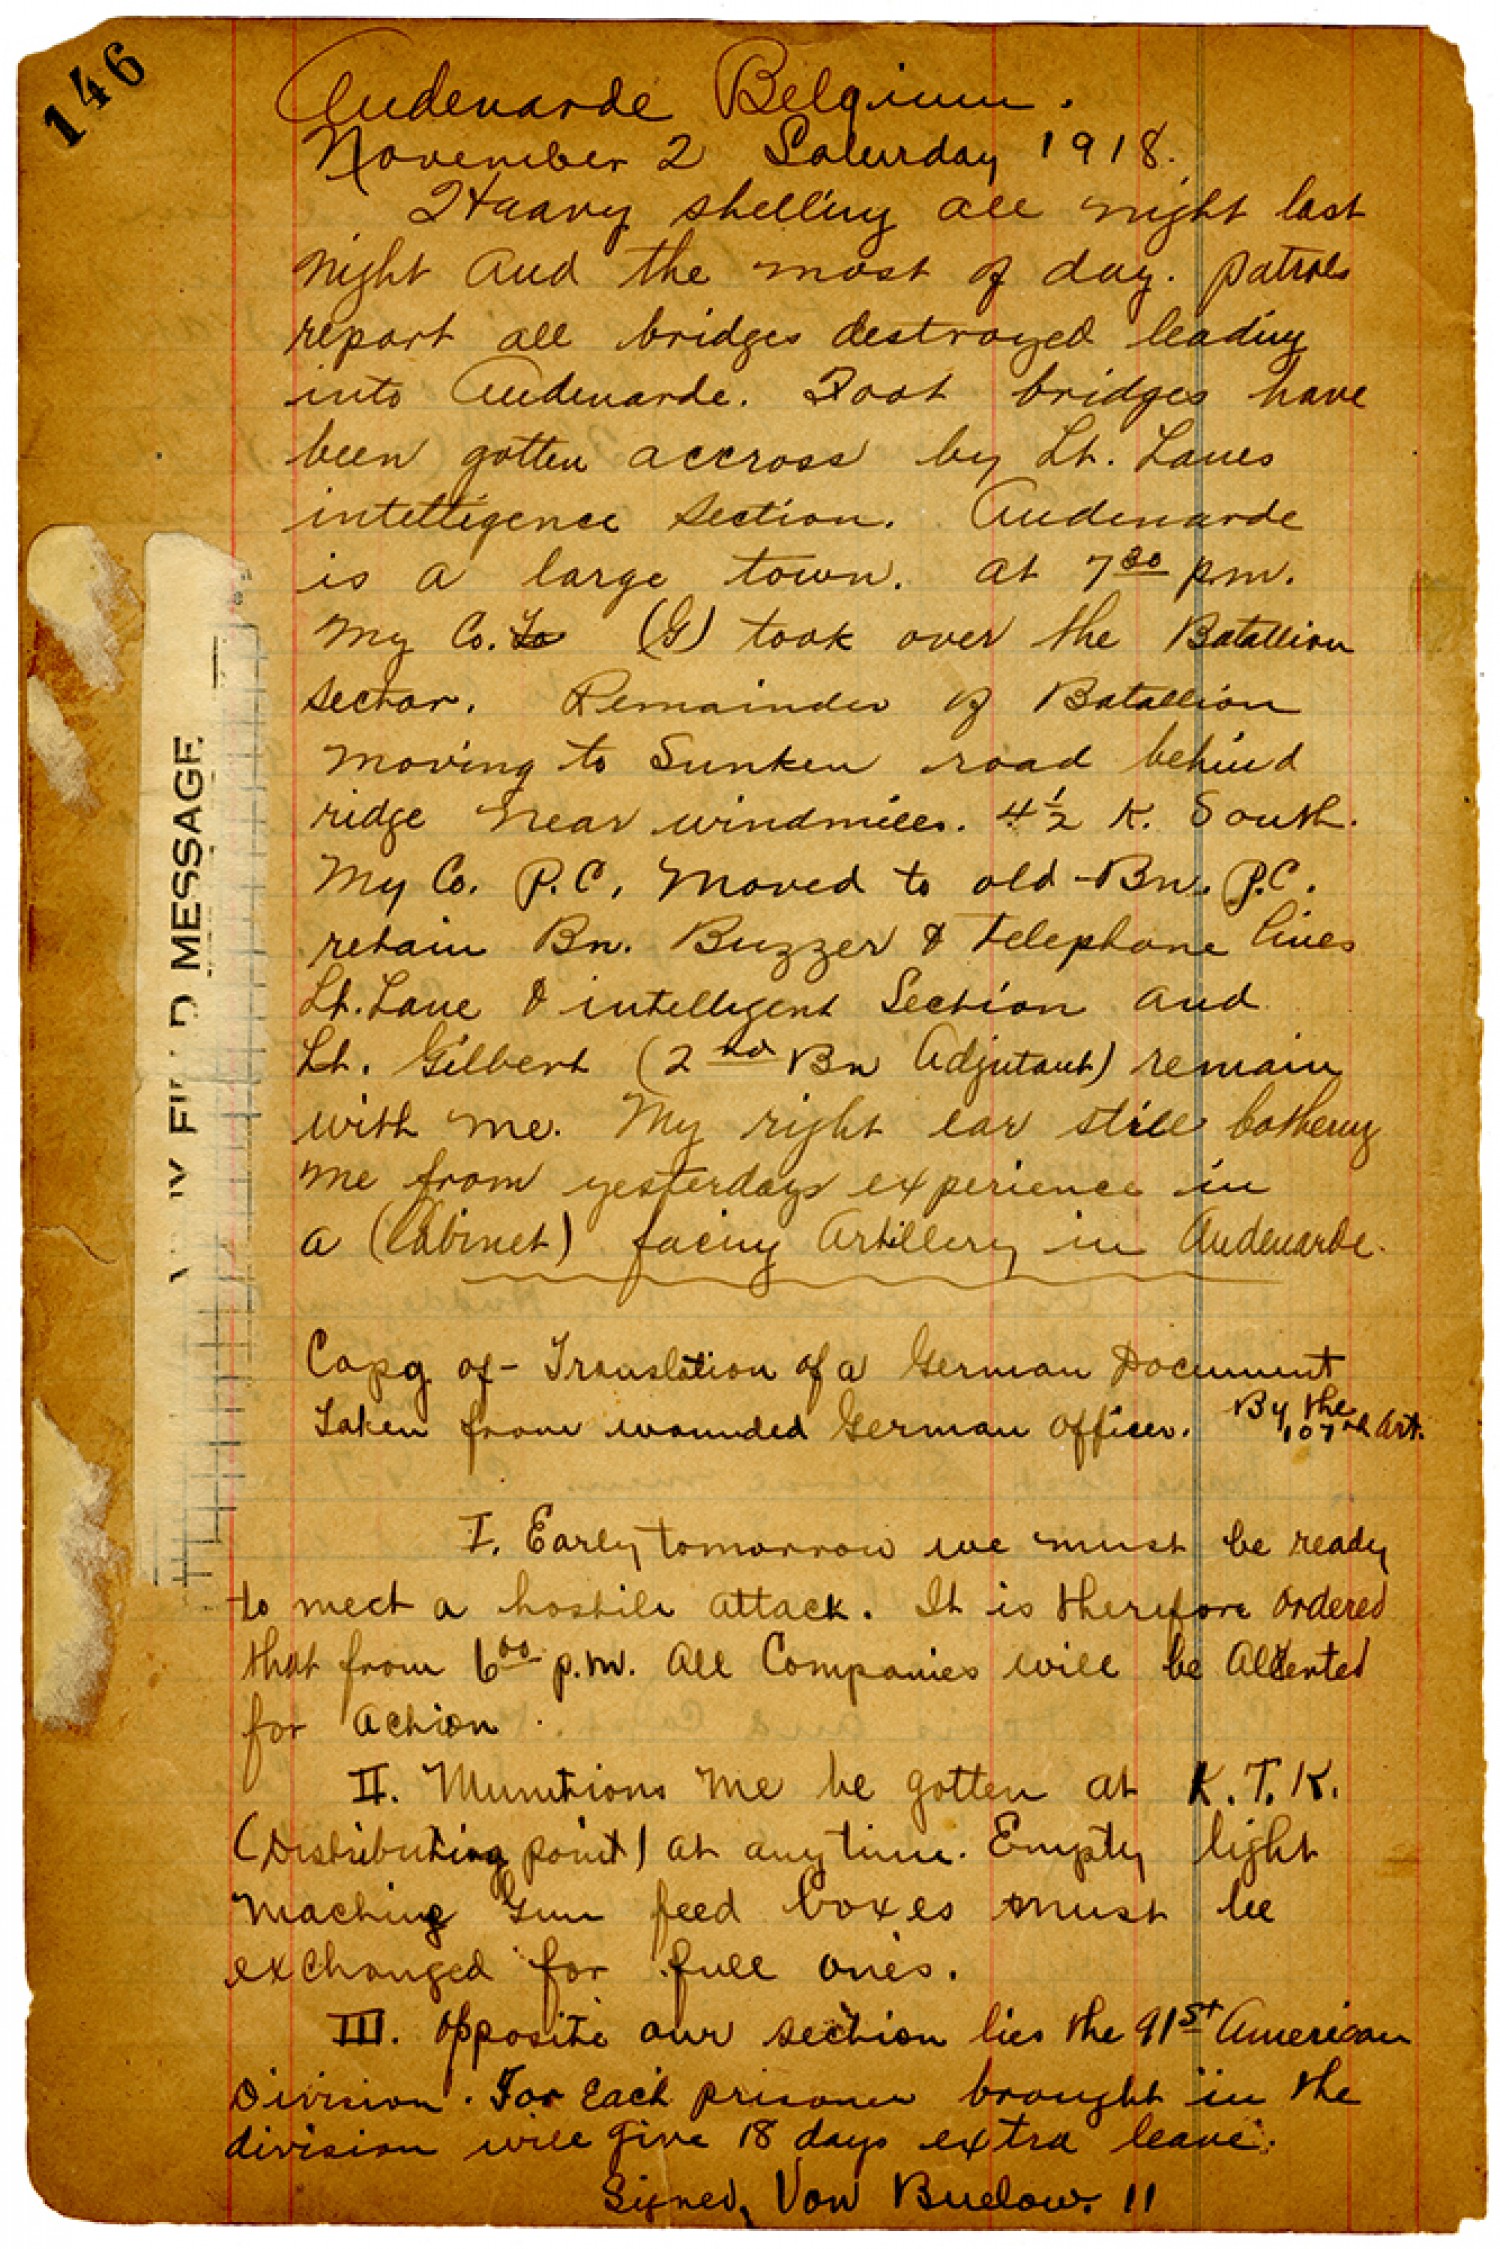 146
Audenarde Belgium.
November 2 Saturday 1918.
Heavy shelling all night last
night and the most of day. patrols
report all bridges destroyed leading
into Audenarde. Foot bridges have
been gotten accross by Lt. Lanes
intelligence section. Audenarde
is a large town. at 7 30 pm.
My Co. (G) took over the Batallion
sector. Remainder of Batallion
moving to Sunken road behind
ridge near windmills. 4 1/2 K. South.
My Co. P.C. moved to old Bn. P.C.
retain Bn. Buzzer & telephone lines
Lt. Lane & intelligent Section and
Lt. Gilbert (2nd Bn Adjutant) remain
with me. My right ear still bothering
me from yesterdays experience in
a (Cabinet) facing Artillery in Audenarde.
Copy of - Translation of a German Document
taken from wounded German officer. By the
107th Art.
I. Early tomorrow we must be ready
to meet a hostile attack. It is therefore ordered
that from 6 00 p.m. all Companies will be
for action.
II. Munitions me be gotten at K.T.K.
(Distributing point) at any time. Empty light
machine Gun feed boxes must be
exchanged for full ones.
III. Opposite our section lies the 91st American
Division. For Each prisoner brought in the
division will give 18 days extra leave.
Signed, Von Buelow. 11
MESSAGE